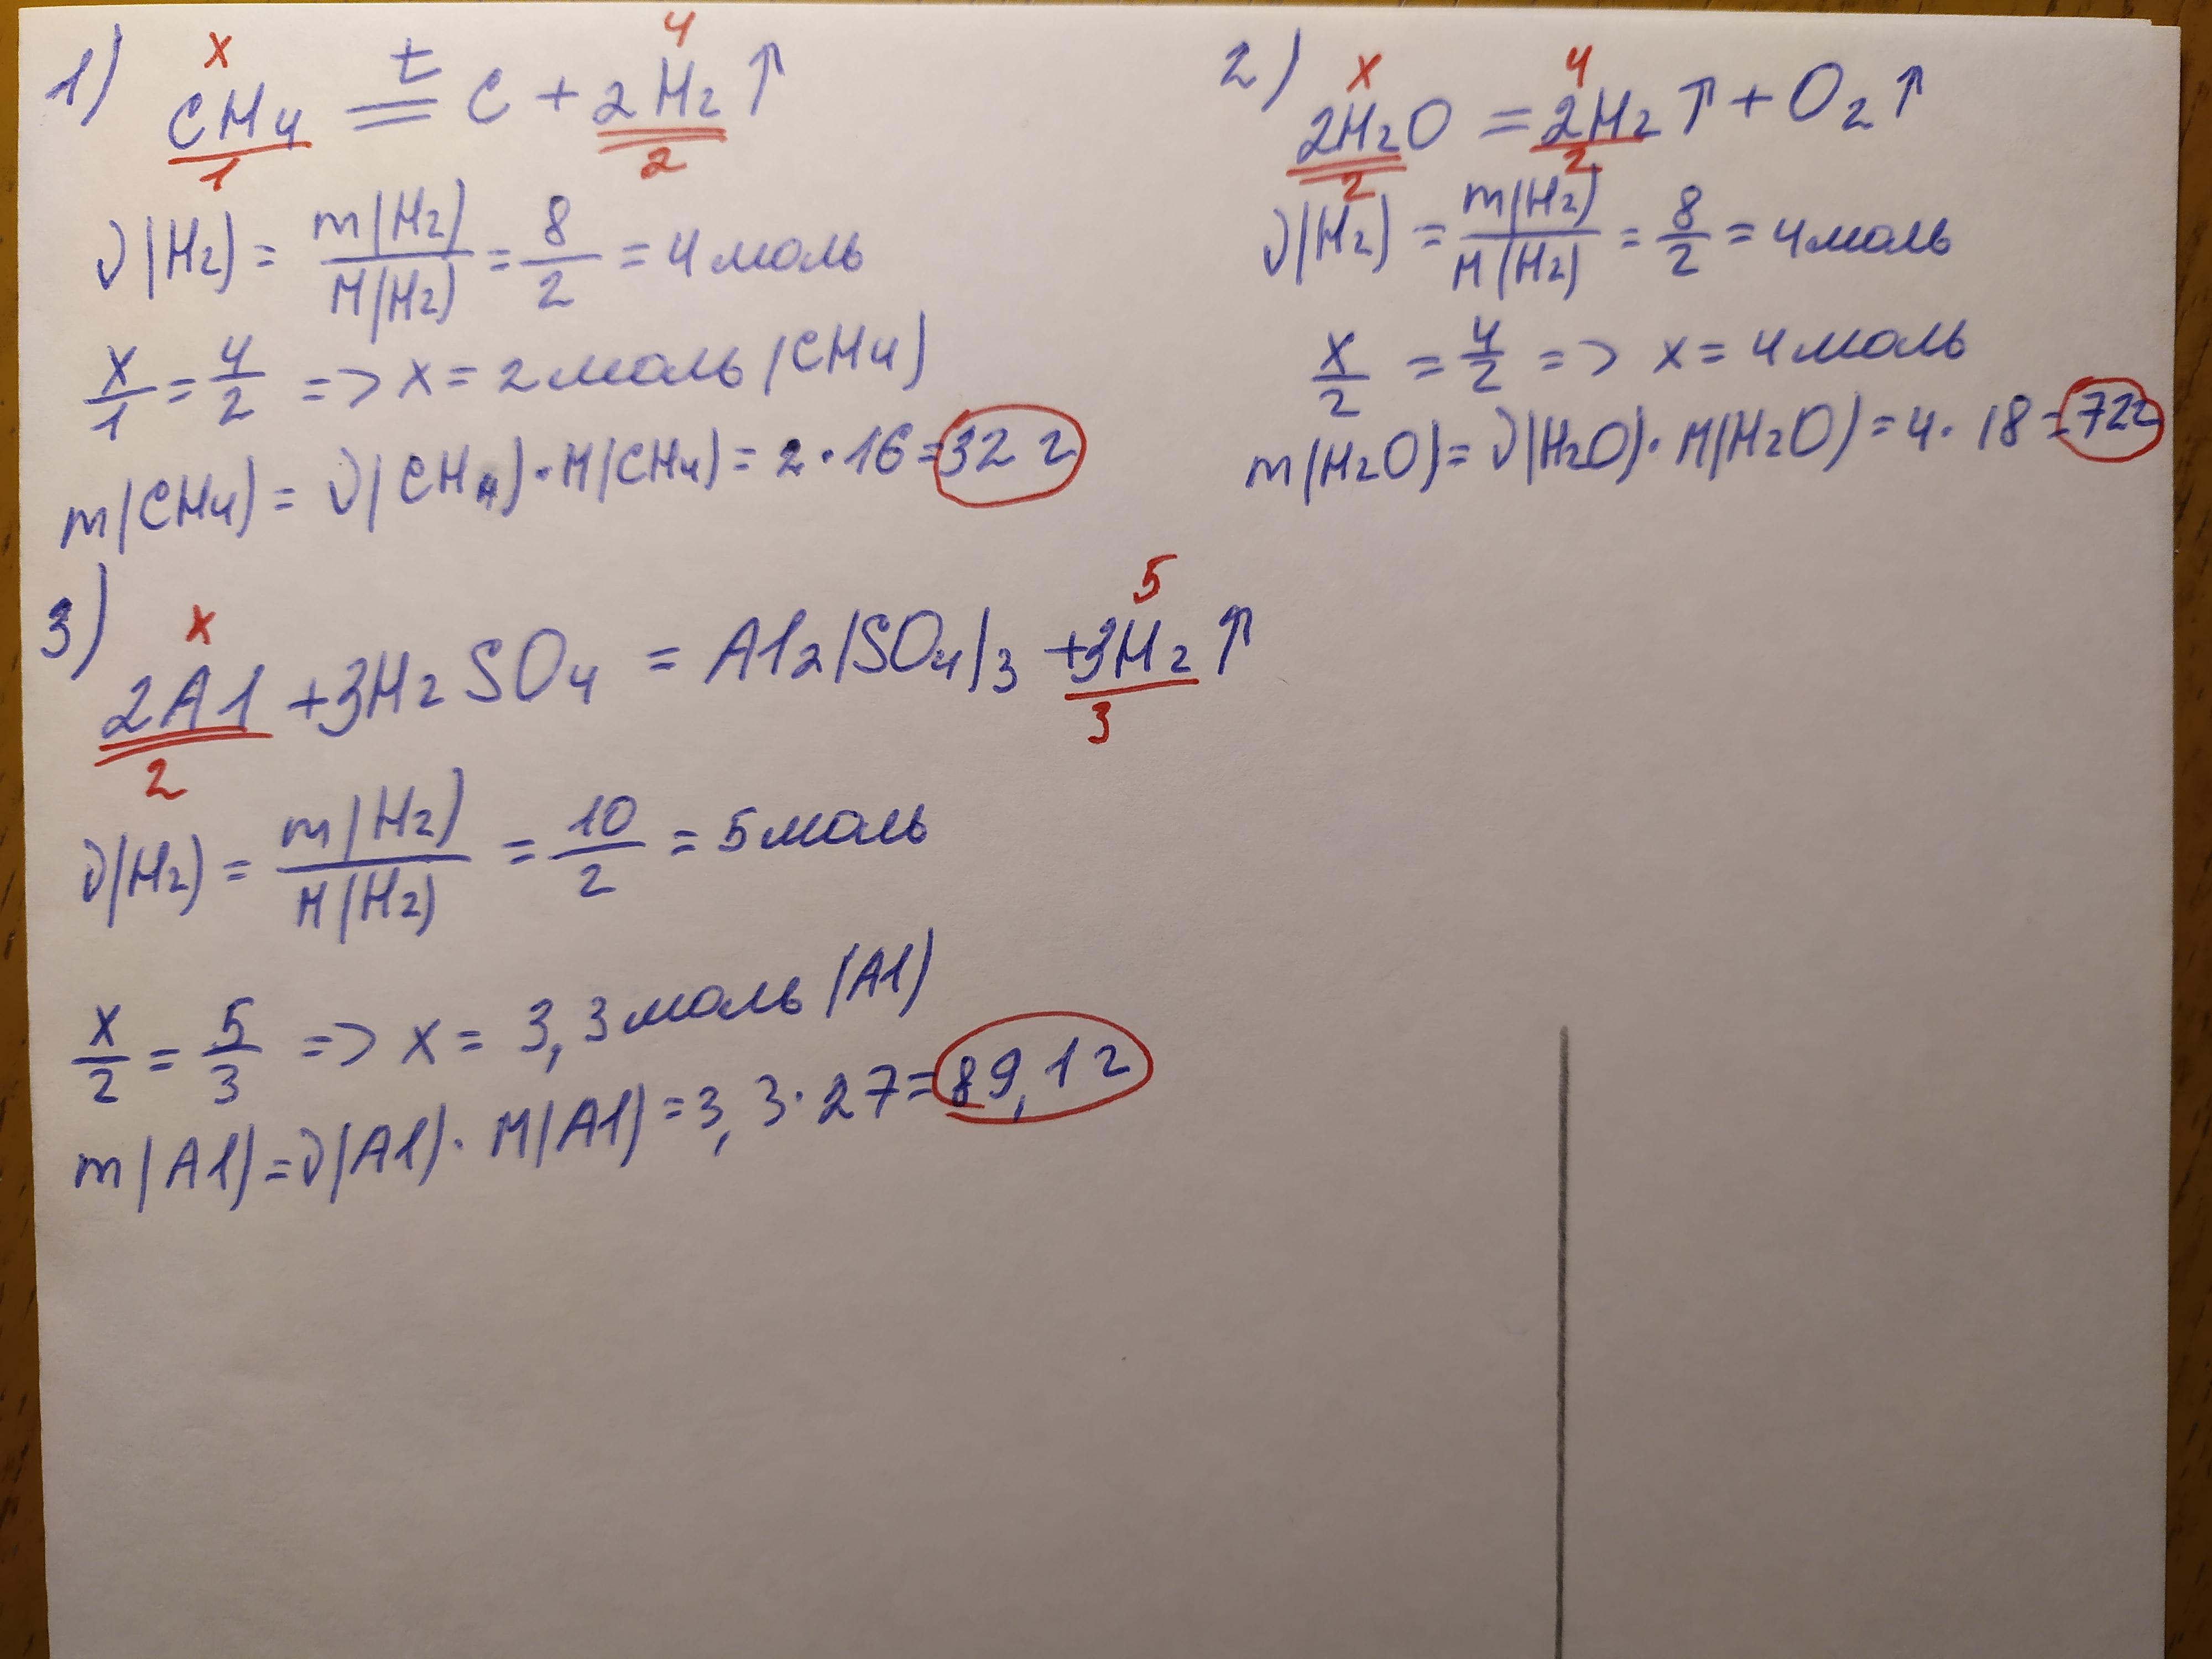 1)
x 4
CH₄ =t= C + 2H₂ ↑
1 2
ν(H₂) = m(H₂)/M(H₂) = 8/2 = 4 моль
x/1 = 4/2 => x = 2 моль (CH₄)
m(CH₄) = ν(CH₄) · M(CH₄) = 2 · 16 = 32 г
2)
x 4
2H₂O = 2H₂ ↑ + O₂ ↑
2 2
ν(H₂) = m(H₂)/M(H₂) = 8/2 = 4 моль
x/2 = 4/2 => x = 4 моль
m(H₂O) = ν(H₂O) · M(H₂O) = 4 · 18 = 72 г
3)
x 5
2Al + 3H₂SO₄ = Al₂(SO₄)₃ + 3H₂ ↑
2 3
ν(H₂) = m(H₂)/M(H₂) = 10/2 = 5 моль
x/2 = 5/3 => x = 3,3 моль (Al)
m(Al) = ν(Al) · M(Al) = 3,3 · 27 = 89,1 г